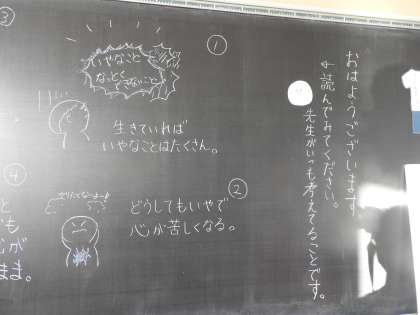 おはようございます。
← 読んでみてください。
先生がいつも考えてることです。
①
いやなこと
なっとく
できないこと
生きていれば
いやなことはたくさん。
②
どうしてもいやで
心が苦しくなる。
③
④
と
も
心が
まま。